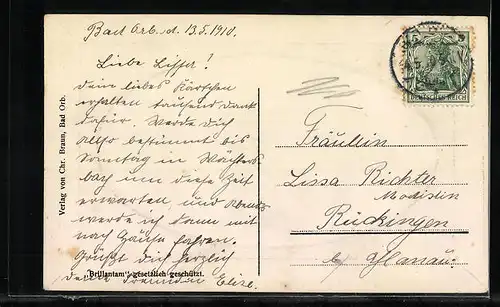 Bad Orb. d. 13.5.1910.
Liebe Lissa!
deine liebes Kärtchen
erhalten tausend Dank
dafür. Werde dich
also bestimmt bis
Sonntag in Wächters-
bach um diese Zeit
erwarten, und
werde ich dann mit
nach Hause fahren.
Grüßt dich herzlich
deine Freundin Elise.
Verlag von Chr. Braun, Bad Orb.
„Brillantam“, gesetzlich geschützt.
DEUTSCHES REICH
Fräulein
Lissa Richter
Modistin
Rückingen
by Hanau.